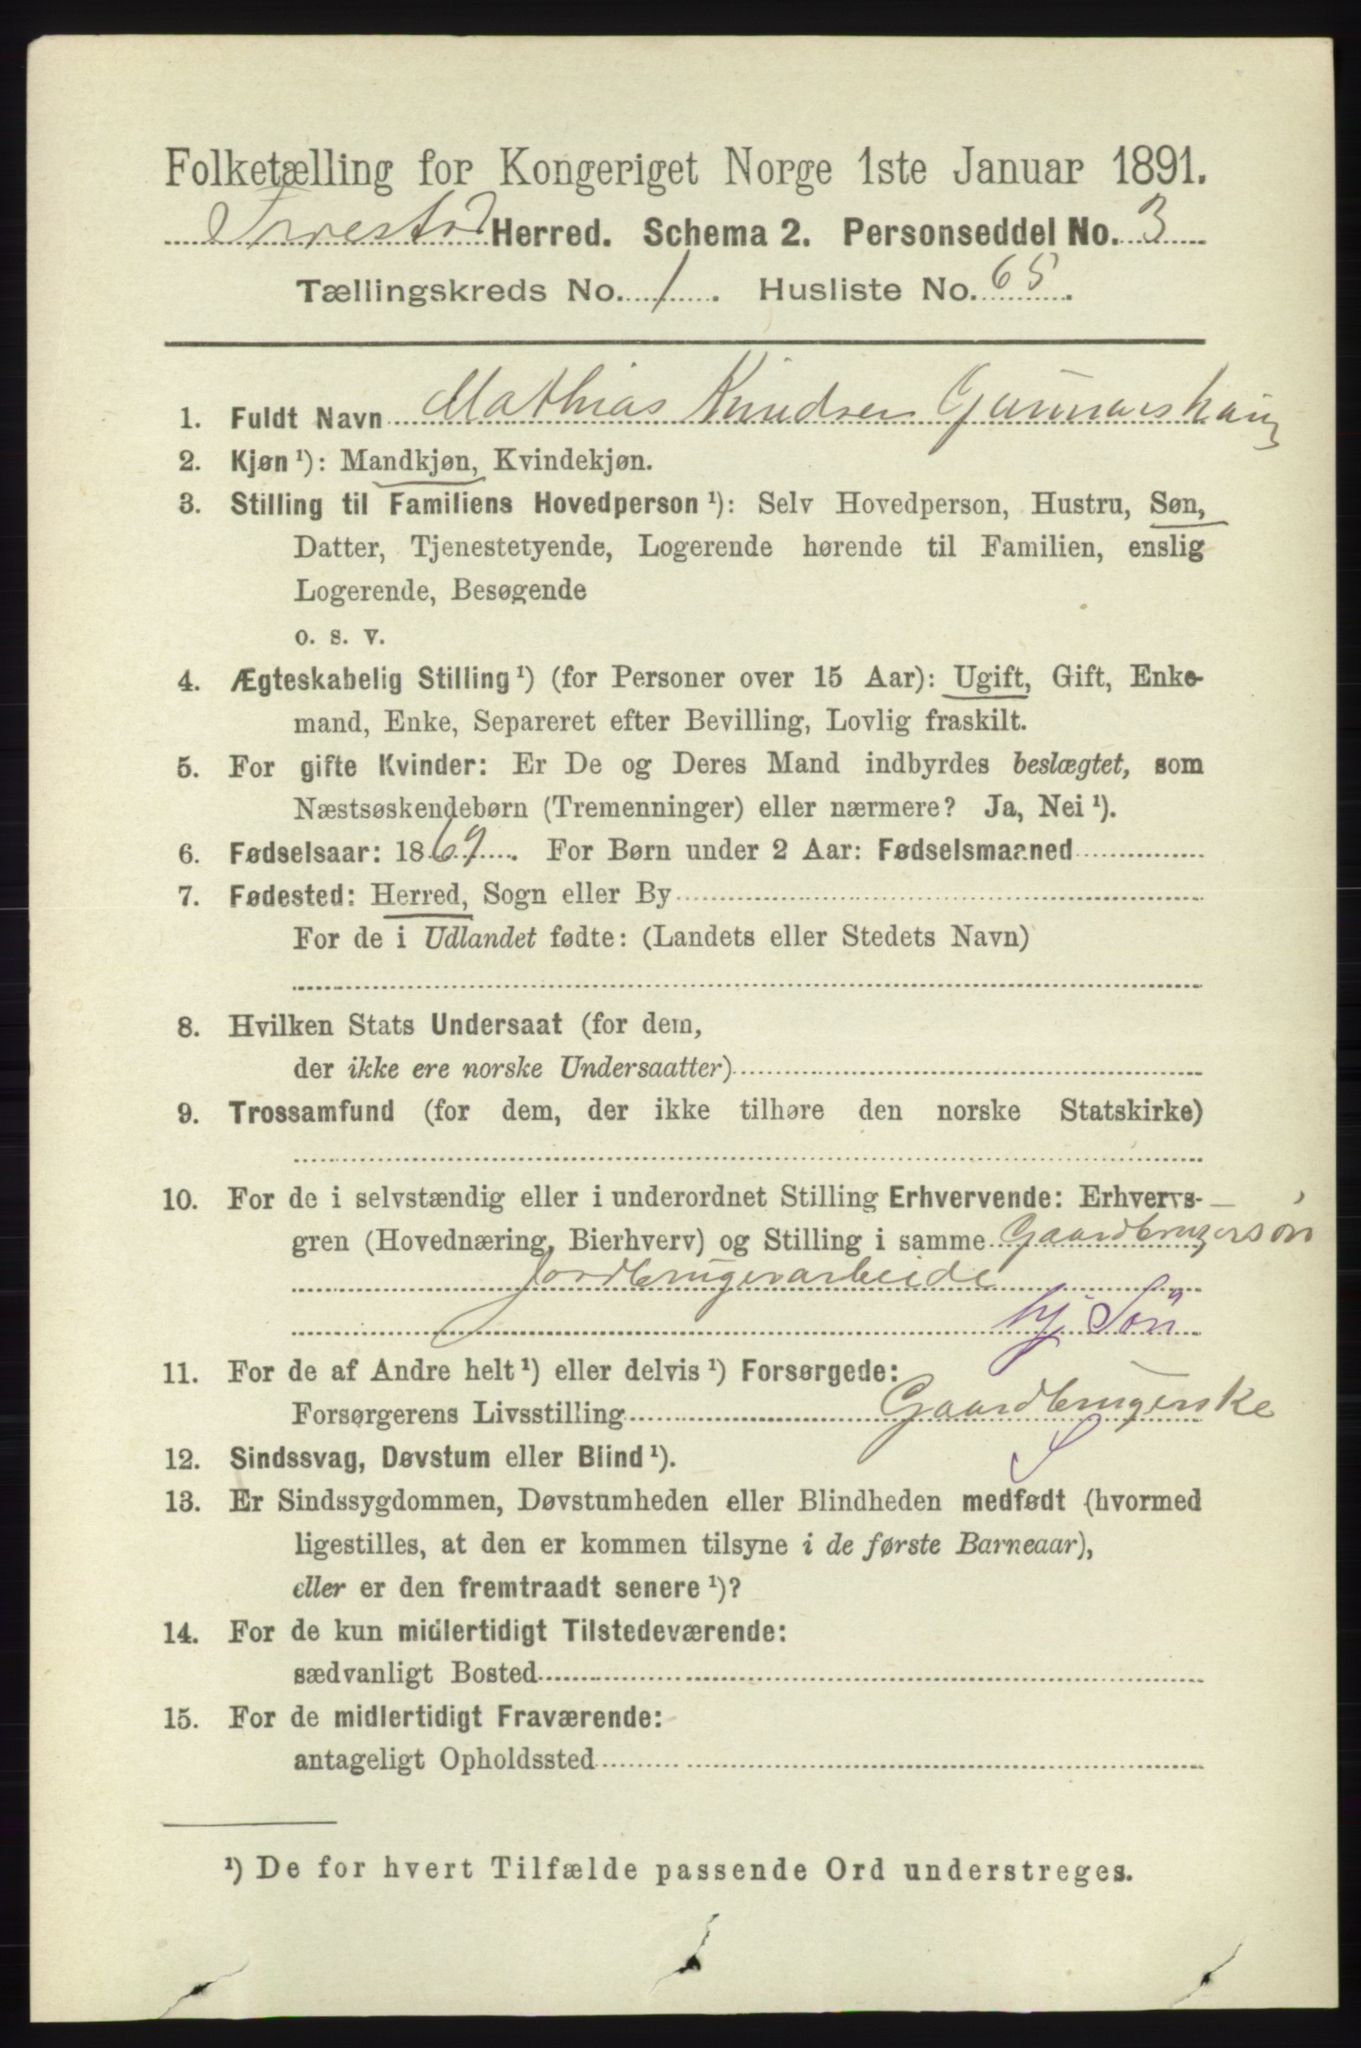 Folketælling for Kongeriget Norge 1ste Januar 1891.
Trøstad Herred. Schema 2. Personseddel No. 3
Tællingskreds No. 1. Husliste No. 65.
1. Fuldt Navn Mathias Knudsen Gunnarshaug
2. Kjøn¹): Mandkjøn, Kvindekjøn.
3. Stilling til Familiens Hovedperson¹): Selv Hovedperson, Hustru, Søn,
Datter, Tjenestetyende, Logerende hørende til Familien, enslig
Logerende, Besøgende
o. s. v.
4. Ægteskabelig Stilling¹) (for Personer over 15 Aar): Ugift, Gift, Enke-
mand, Enke, Separeret efter Bevilling, Lovlig fraskilt.
5. For gifte Kvinder: Er De og Deres Mand indbyrdes beslægtet, som
Næstsøskendebørn (Tremenninger) eller nærmere? Ja, Nei¹).
6. Fødselsaar: 1869. For Børn under 2 Aar: Fødselsmaaned
7. Fødested: Herred, Sogn eller By
For de i Udlandet fødte: (Landets eller Stedets Navn)
8. Hvilken Stats Undersaat (for dem,
der ikke ere norske Undersaatter)
9. Trossamfund (for dem, der ikke tilhøre den norske Statskirke)
10. For de i selvstændig eller i underordnet Stilling Erhvervende: Erhvervs-
gren (Hovednæring, Bierhverv) og Stilling i samme Gaardbrugersøn
Jordbrugerarbeide
hj. Søn
11. For de af Andre helt¹) eller delvis¹) Forsørgede:
Forsørgerens Livsstilling Gaardbrugerske
S
12. Sindssvag, Døvstum eller Blind¹).
13. Er Sindssygdommen, Døvstumheden eller Blindheden medfødt (hvormed
ligestilles, at den er kommen tilsyne i de første Barneaar),
eller er den fremtraadt senere¹)?
14. For de kun midlertidigt Tilstedeværende:
sædvanligt Bosted
15. For de midlertidigt Fraværende:
antageligt Opholdssted
¹) De for hvert Tilfælde passende Ord understreges.